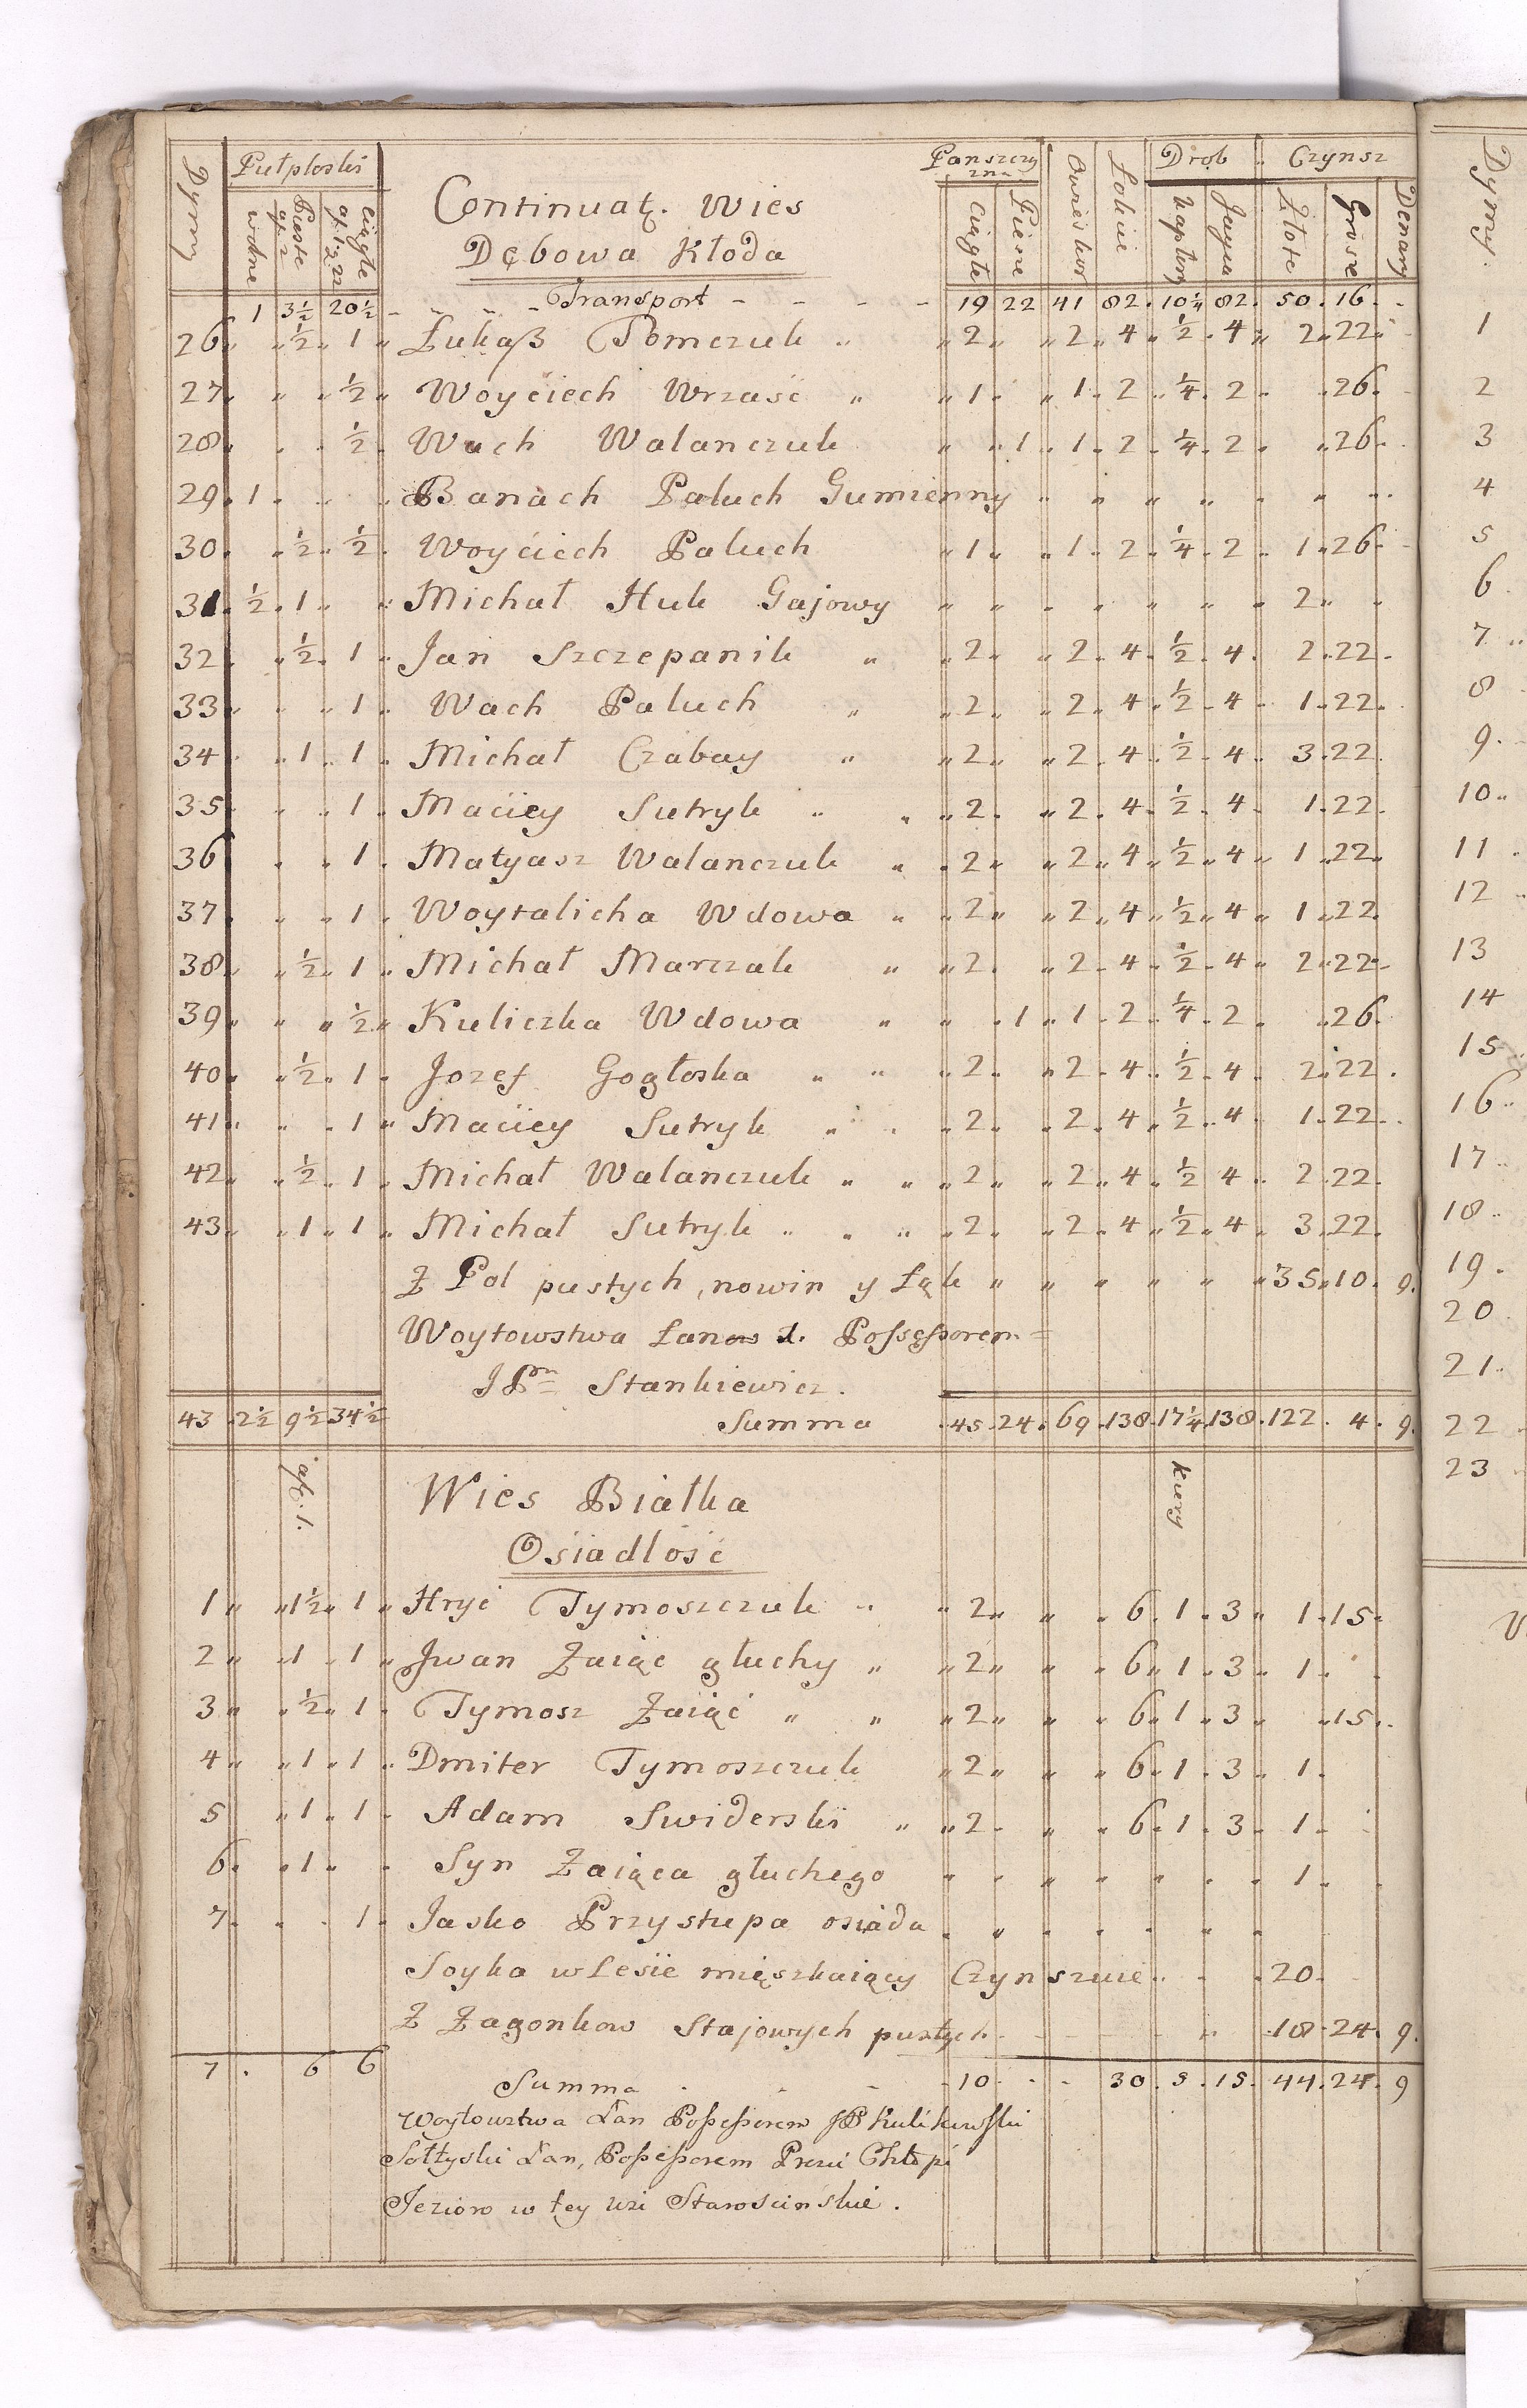 Dymy Pułploski Continuaĉ. Wies Panszczyzna Owies kor Łokcie Drob Czynsz
wolne Piesze af 2 ciągłe af. 1 g 22 Dębowa Kłoda ciągłe Piesze kapłony Jayca Złote Grosze Denary
1 3½ 20½ Transport 19 22 41 82 10¼ 82 50 16
26 ½ 1 Łukaß Tomczuk 2 2 4 ½ 4 2 22
27 ½ Woyciech Wrzasć 1 1 2 ¼ 2 26
28 ½ Wach Walanczuk 1 1 2 ¼ 2 26
29 1 Banach Paluch Gumienny
30 ½ ½ Woyciech Paluch 1 1 2 ¼ 2 1 26
31 ½ 1 Michał Huk Gajowy 2
32 ½ 1 Jan Szczepanik 2 2 4 ½ 4 2 22
33 1 Wach Paluch 2 2 4 ½ 4 1 22
34 1 1 Michał Czabay 2 2 4 ½ 4 3 22
35 1 Maciey Sutryk 2 2 4 ½ 4 1 22
36 1 Matyasz Walanczuk 2 2 4 ½ 4 1 22
37 1 Woytalicha Wdowa 2 2 4 ½ 4 1 22
38 ½ 1 Michał Marczak 2 2 4 ½ 4 2 22
39 ½ Kuliczka Wdowa 1 1 2 ¼ 2 26
40 ½ 1 Jozef Gogłoska 2 2 4 ½ 4 2 22
41 1 Maciey Sutryk 2 2 4 ½ 4 1 22
42 ½ 1 Michał Walanczuk 2 2 4 ½ 4 2 22
43 1 1 Michał Sutryk 2 2 4 ½ 4 3 22
Z Pol pustych, nowin y Łąk 35 10 9
Woytowstwa Łanow 1. Possessorem
JPan Stankiewicz.
43 2½ 9½ 34½ Summa 45 24 69 138 17¼ 138 122 4 9
af. 1. Wies Białka kury
Osiadłosć
1 1½ 1 Hryć Tymoszczuk 2 6 1 3 1 15
2 1 1 Jwan Zaiąc głuchy 2 6 1 3 1
3 ½ 1 Tymosz Zaiąć 2 6 1 3 15
4 1 1 Dmiter Tymoszczuk 2 6 1 3 1
5 1 1 Adam Swiderski 2 6 1 3 1
6 1 Syn Zaiąca głuchego 1
7 1 Jasko Przystupa osiada
Soyka w Lesie mięszkaiący Czynszuie 20
Z Zagonkow Stajowych pustych 18 24 9
7 6 6 Summa 10 30 5 15 44 24 9
Woytowstwa Łan Poßeßorem JP Kulikowski
Sołtyski Łan, Poßeßorem Przui Chłopi
Jezioro w tey wsi Staroscinskie.
Dymy.
1
2
3
4
5
6
7
8
9
10
11
12
13
14
15
16
17
18
19
20
21
22
23